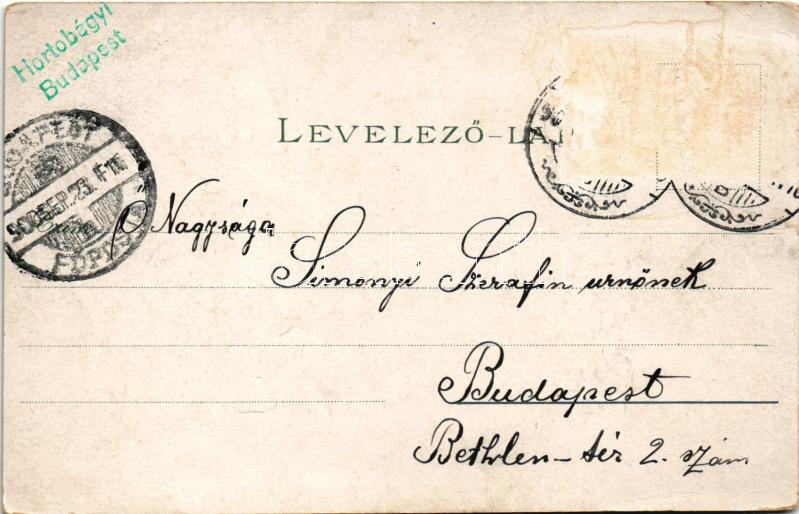 Hortobágyi
Budapest
LEVELEZŐ-LA
BUDAPEST
900 SEP. 23. F
FŐPOSTA
Ő Nagysága
Simonyi Szerafin urnőnek
Budapest
Bethlen-tér 2. szám